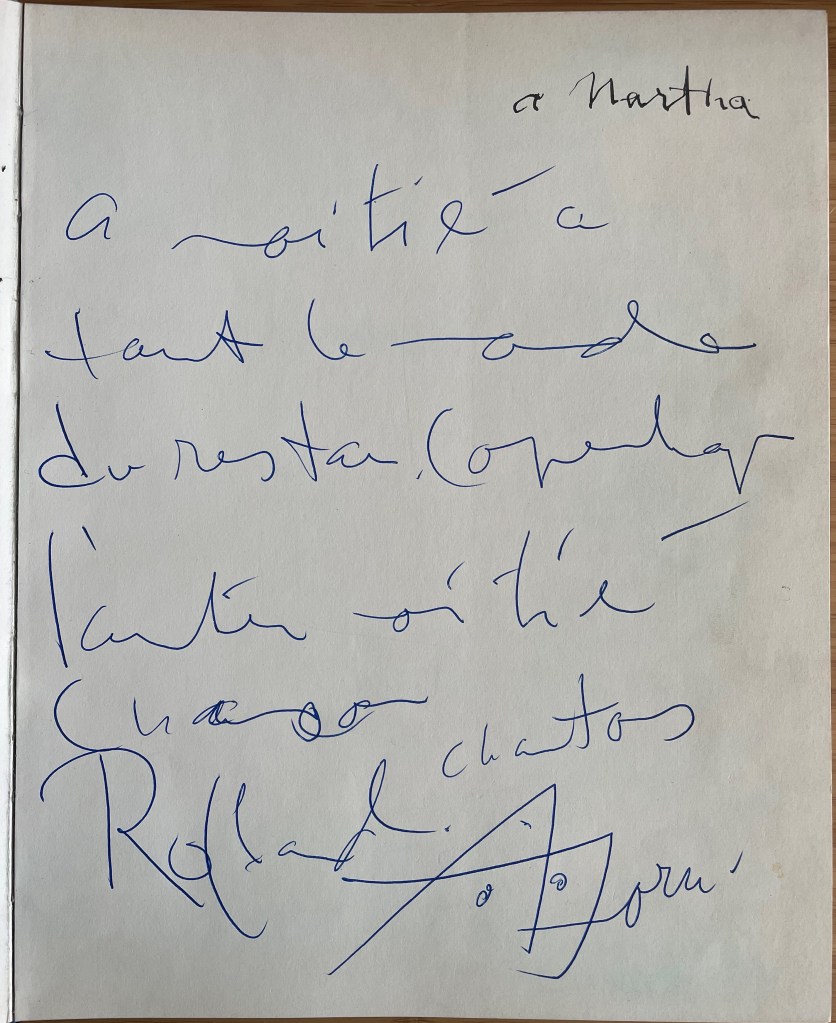 a Martha
a moitié a
tout le monde
du restau. Copenhag
l'autre moitié
chantons
Rolland